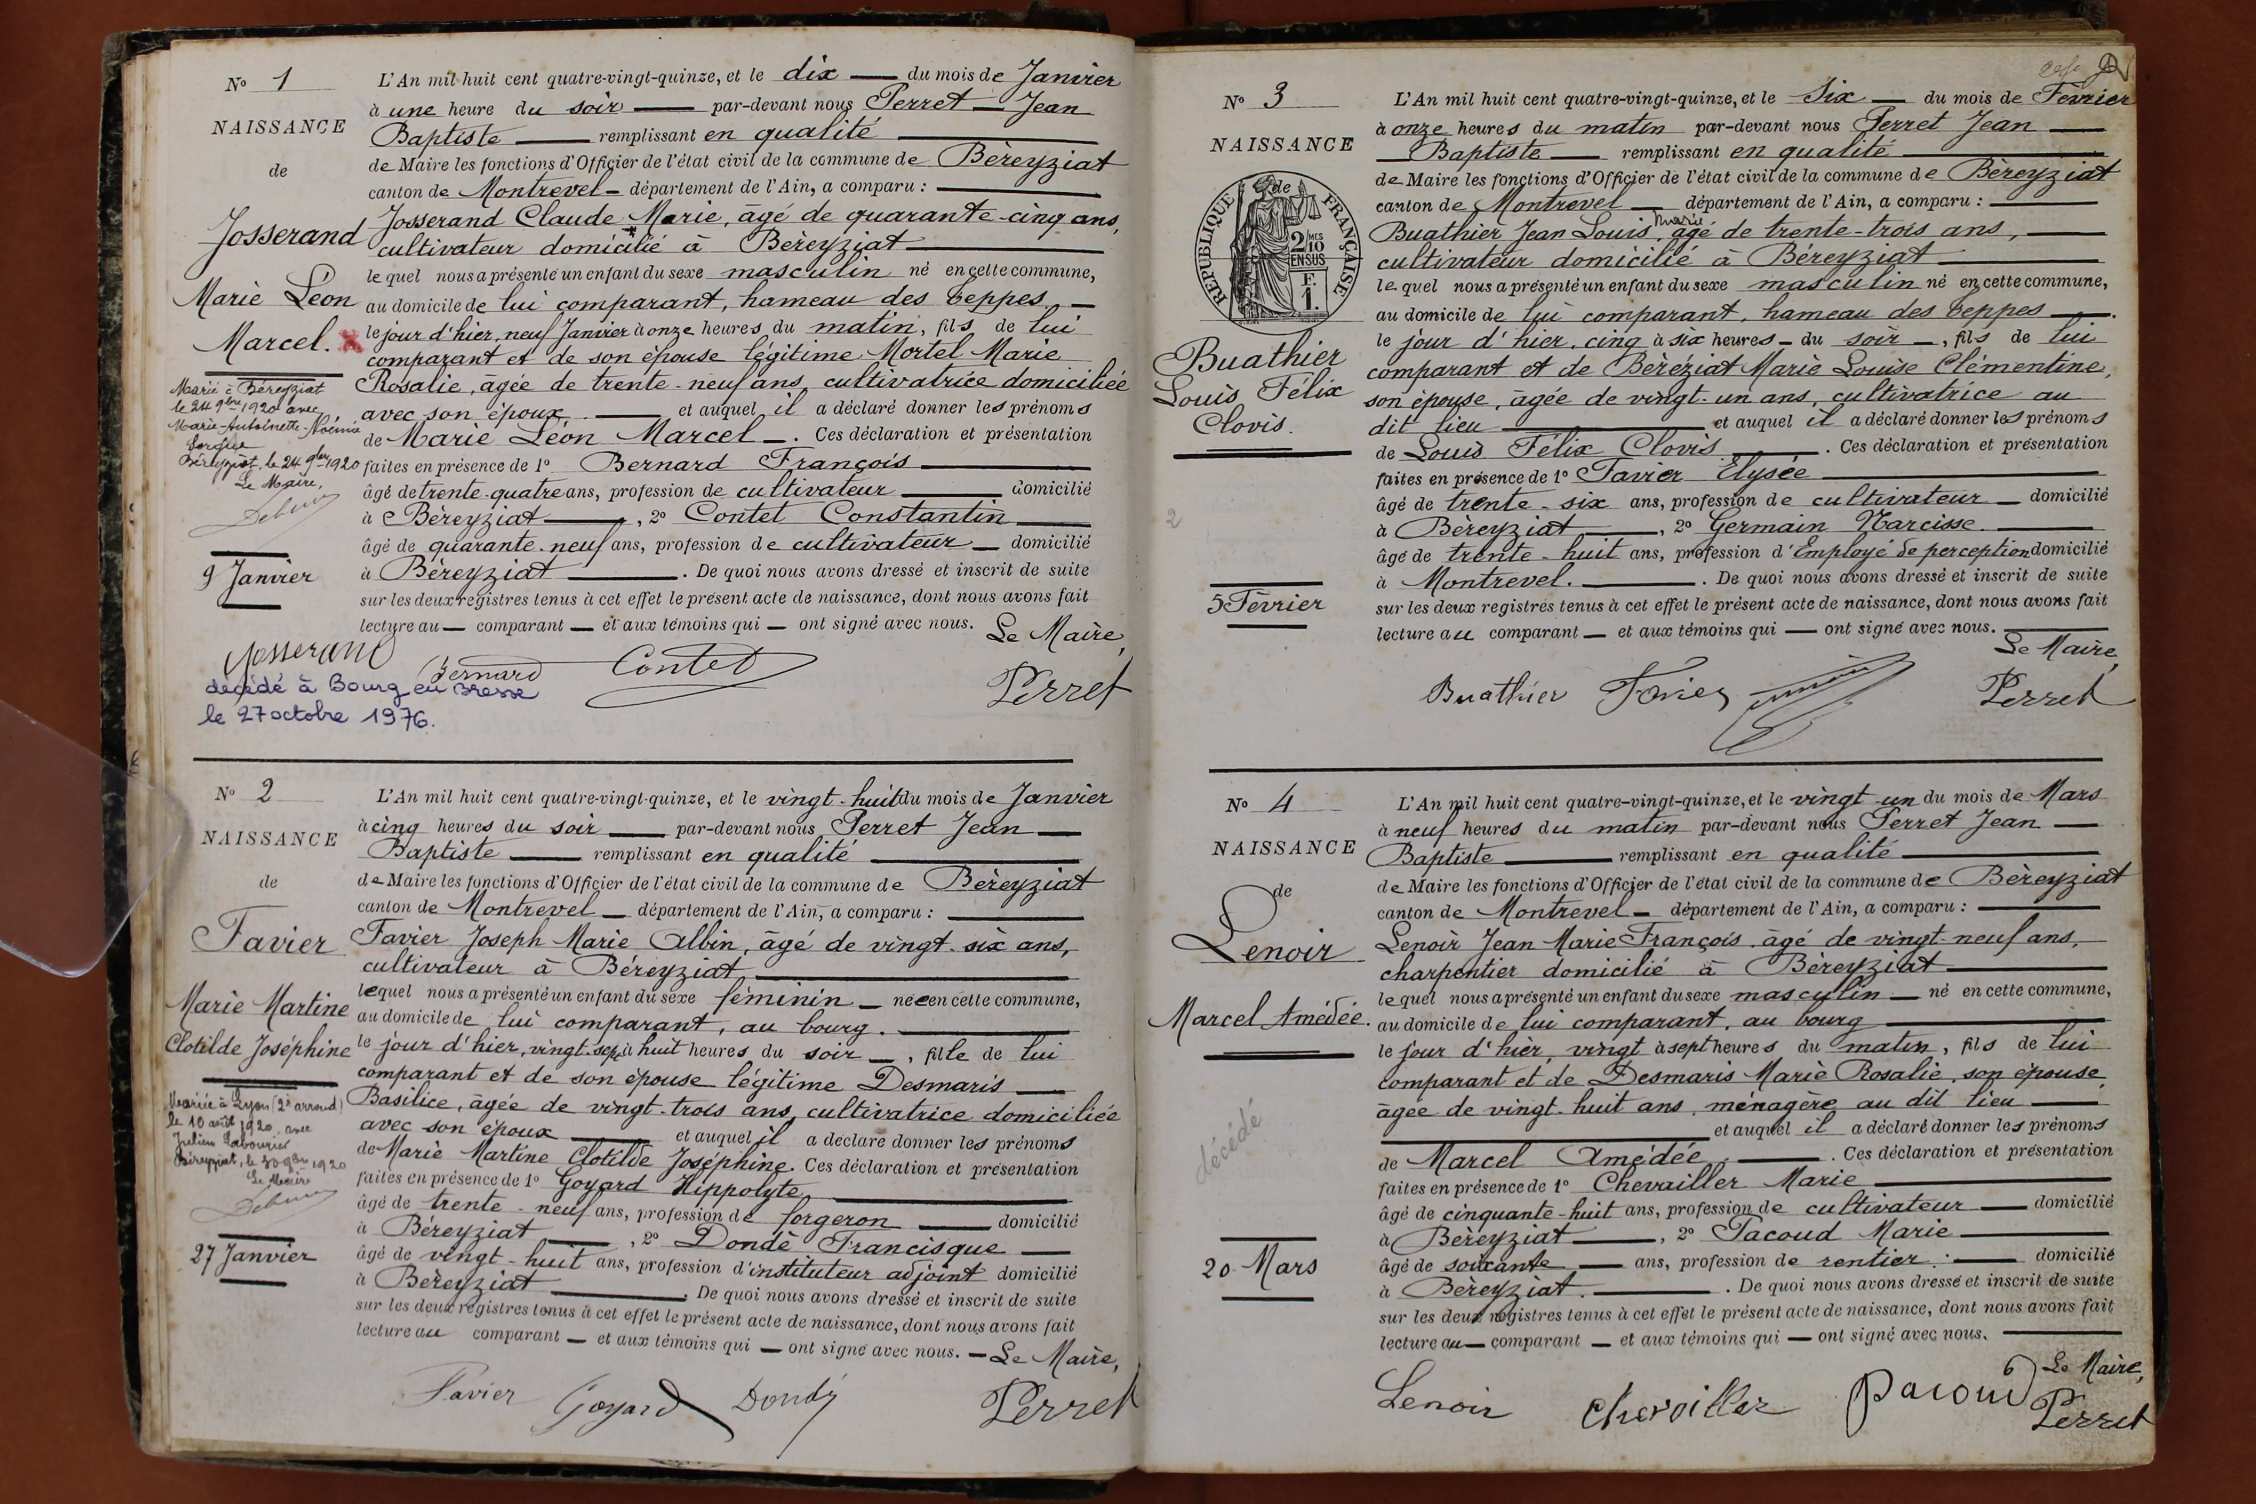 N° 1
NAISSANCE
de
Josserand
Marie Léon
Marcel.
Marié à Béreyziat
le 24 9bre 1920 avec
Marie-Antoinette-Noémie
Béreyziat, le 24 9bre 1920
Le Maire,
9 Janvier
L'An mil huit cent quatre-vingt-quinze, et le dix — du mois de Janvier
à une heure du soir — par-devant nous Perret — Jean
Baptiste — remplissant en qualité —
de Maire les fonctions d'Officier de l'état civil de la commune de Bèreyziat
canton de Montrevel — département de l'Ain, a comparu : —
Josserand Claude Marie, âgé de quarante-cinq ans,
cultivateur domicilié à Bèreyziat —
lequel nous a présenté un enfant du sexe masculin né en cette commune,
au domicile de lui comparant, hameau des beppes —
le jour d'hier, neuf Janvier à onze heures du matin, fils de lui
comparant et de son épouse légitime Mortel Marie
Rosalie, âgée de trente-neuf ans, cultivatrice domiciliée
avec son époux. — et auquel il a déclaré donner les prénoms
de Marie Léon Marcel —. Ces déclaration et présentation
faites en présence de 1° Bernard François —
âgé de trente-quatre ans, profession de cultivateur — domicilié
à Bèreyziat —, 2° Contet Constantin —
âgé de quarante-neuf ans, profession de cultivateur — domicilié
à Béreyziat —. De quoi nous avons dressé et inscrit de suite
sur les deux registres tenus à cet effet le présent acte de naissance, dont nous avons fait
lecture au — comparant — et aux témoins qui — ont signé avec nous. Le Maire,
Josserand Bernard Contet Perret
décédé à Bourg en Bresse
le 27 octobre 1976.
N° 2
NAISSANCE
de
Favier
Marie Martine
Clotilde Joséphine
Mariée à Lyon (2e arrond)
le 10 août 1920, avec
Julien Labourier
Béreyziat, le 30 9bre 1920
Le Maire
27 Janvier
L'An mil huit cent quatre-vingt-quinze, et le vingt-huit du mois de Janvier
à cinq heures du soir — par-devant nous Perret Jean —
Baptiste — remplissant en qualité —
de Maire les fonctions d'Officier de l'état civil de la commune de Bèreyziat
canton de Montrevel — département de l'Ain, a comparu : —
Favier Joseph Marie Albin, âgé de vingt-six ans,
cultivateur à Béreyziat —
lequel nous a présenté un enfant du sexe féminin — née en cette commune,
au domicile de lui comparant, au bourg. —
le jour d'hier, vingt-sept à huit heures du soir —, fille de lui
comparant et de son épouse légitime Desmaris —
Basilice, âgée de vingt-trois ans, cultivatrice domiciliée
avec son époux — et auquel il a déclaré donner les prénoms
de Marie Martine Clotilde Joséphine. Ces déclaration et présentation
faites en présence de 1° Goyard Hippolyte, —
âgé de trente-neuf ans, profession de forgeron — domicilié
à Béreyziat —, 2° Dondé Francisque —
âgé de vingt-huit ans, profession d'instituteur adjoint domicilié
à Béreyziat —. De quoi nous avons dressé et inscrit de suite
sur les deux registres tenus à cet effet le présent acte de naissance, dont nous avons fait
lecture au comparant — et aux témoins qui — ont signé avec nous. — Le Maire,
Favier Goyard Dondé Perret
N° 3
NAISSANCE
de
RÉPUBLIQUE FRANÇAISE
2/10 MES
EN SUS
F.
1.
Buathier
Louis Félix
Clovis.
2
5 Février
L'An mil huit cent quatre-vingt-quinze, et le Six — du mois de Février
à onze heures du matin par-devant nous Perret Jean —
— Baptiste — remplissant en qualité —
de Maire les fonctions d'Officier de l'état civil de la commune de Bèreyziat
canton de Montrevel — département de l'Ain, a comparu : —
Buathier Jean Louis Marie, âgé de trente-trois ans, —
cultivateur domicilié à Béreyziat —
lequel nous a présenté un enfant du sexe masculin né en cette commune,
au domicile de lui comparant, hameau des beppes —.
le jour d'hier, cinq à six heures — du soir —, fils de lui
comparant et de Bèréziat Marie Louise Clémentine,
son épouse, âgée de vingt-un ans, cultivatrice au
dit lieu — et auquel il a déclaré donner les prénoms
de Louis Félix Clovis —. Ces déclaration et présentation
faites en présence de 1° Favier Elysée —
âgé de trente-six ans, profession de cultivateur — domicilié
à Bèreyziat —, 2° Germain Narcisse. —
âgé de trente-huit ans, profession d'Employé de perception domicilié
à Montrevel. —. De quoi nous avons dressé et inscrit de suite
sur les deux registres tenus à cet effet le présent acte de naissance, dont nous avons fait
lecture au comparant — et aux témoins qui — ont signé avec nous. —
Le Maire,
Buathier Favier Perret
N° 4
NAISSANCE
de
Lenoir
Marcel Amédée.
décédé
20 Mars
L'An mil huit cent quatre-vingt-quinze, et le vingt-un du mois de Mars
à neuf heures du matin par-devant nous Perret Jean —
Baptiste — remplissant en qualité —
de Maire les fonctions d'Officier de l'état civil de la commune de Bèreyziat
canton de Montrevel — département de l'Ain, a comparu : —
Lenoir Jean Marie François, âgé de vingt-neuf ans,
charpentier domicilié à Bèreyziat —
lequel nous a présenté un enfant du sexe masculin — né en cette commune,
au domicile de lui comparant, au bourg —
le jour d'hier, vingt à sept heures du matin, fils de lui
comparant et de Desmaris Marie Rosalie, son épouse,
âgée de vingt-huit ans, ménagère au dit lieu —
— et auquel il a déclaré donner les prénoms
de Marcel Amédée. —. Ces déclaration et présentation
faites en présence de 1° Chevailler Marie —
âgé de cinquante-huit ans, profession de cultivateur — domicilié
à Bèreyziat —, 2° Pacoud Marie —
âgé de soixante — ans, profession de rentier. — domicilié
à Bèreyziat. —. De quoi nous avons dressé et inscrit de suite
sur les deux registres tenus à cet effet le présent acte de naissance, dont nous avons fait
lecture au — comparant — et aux témoins qui — ont signé avec nous. —
Le Maire,
Lenoir Chevailler Pacoud Perret